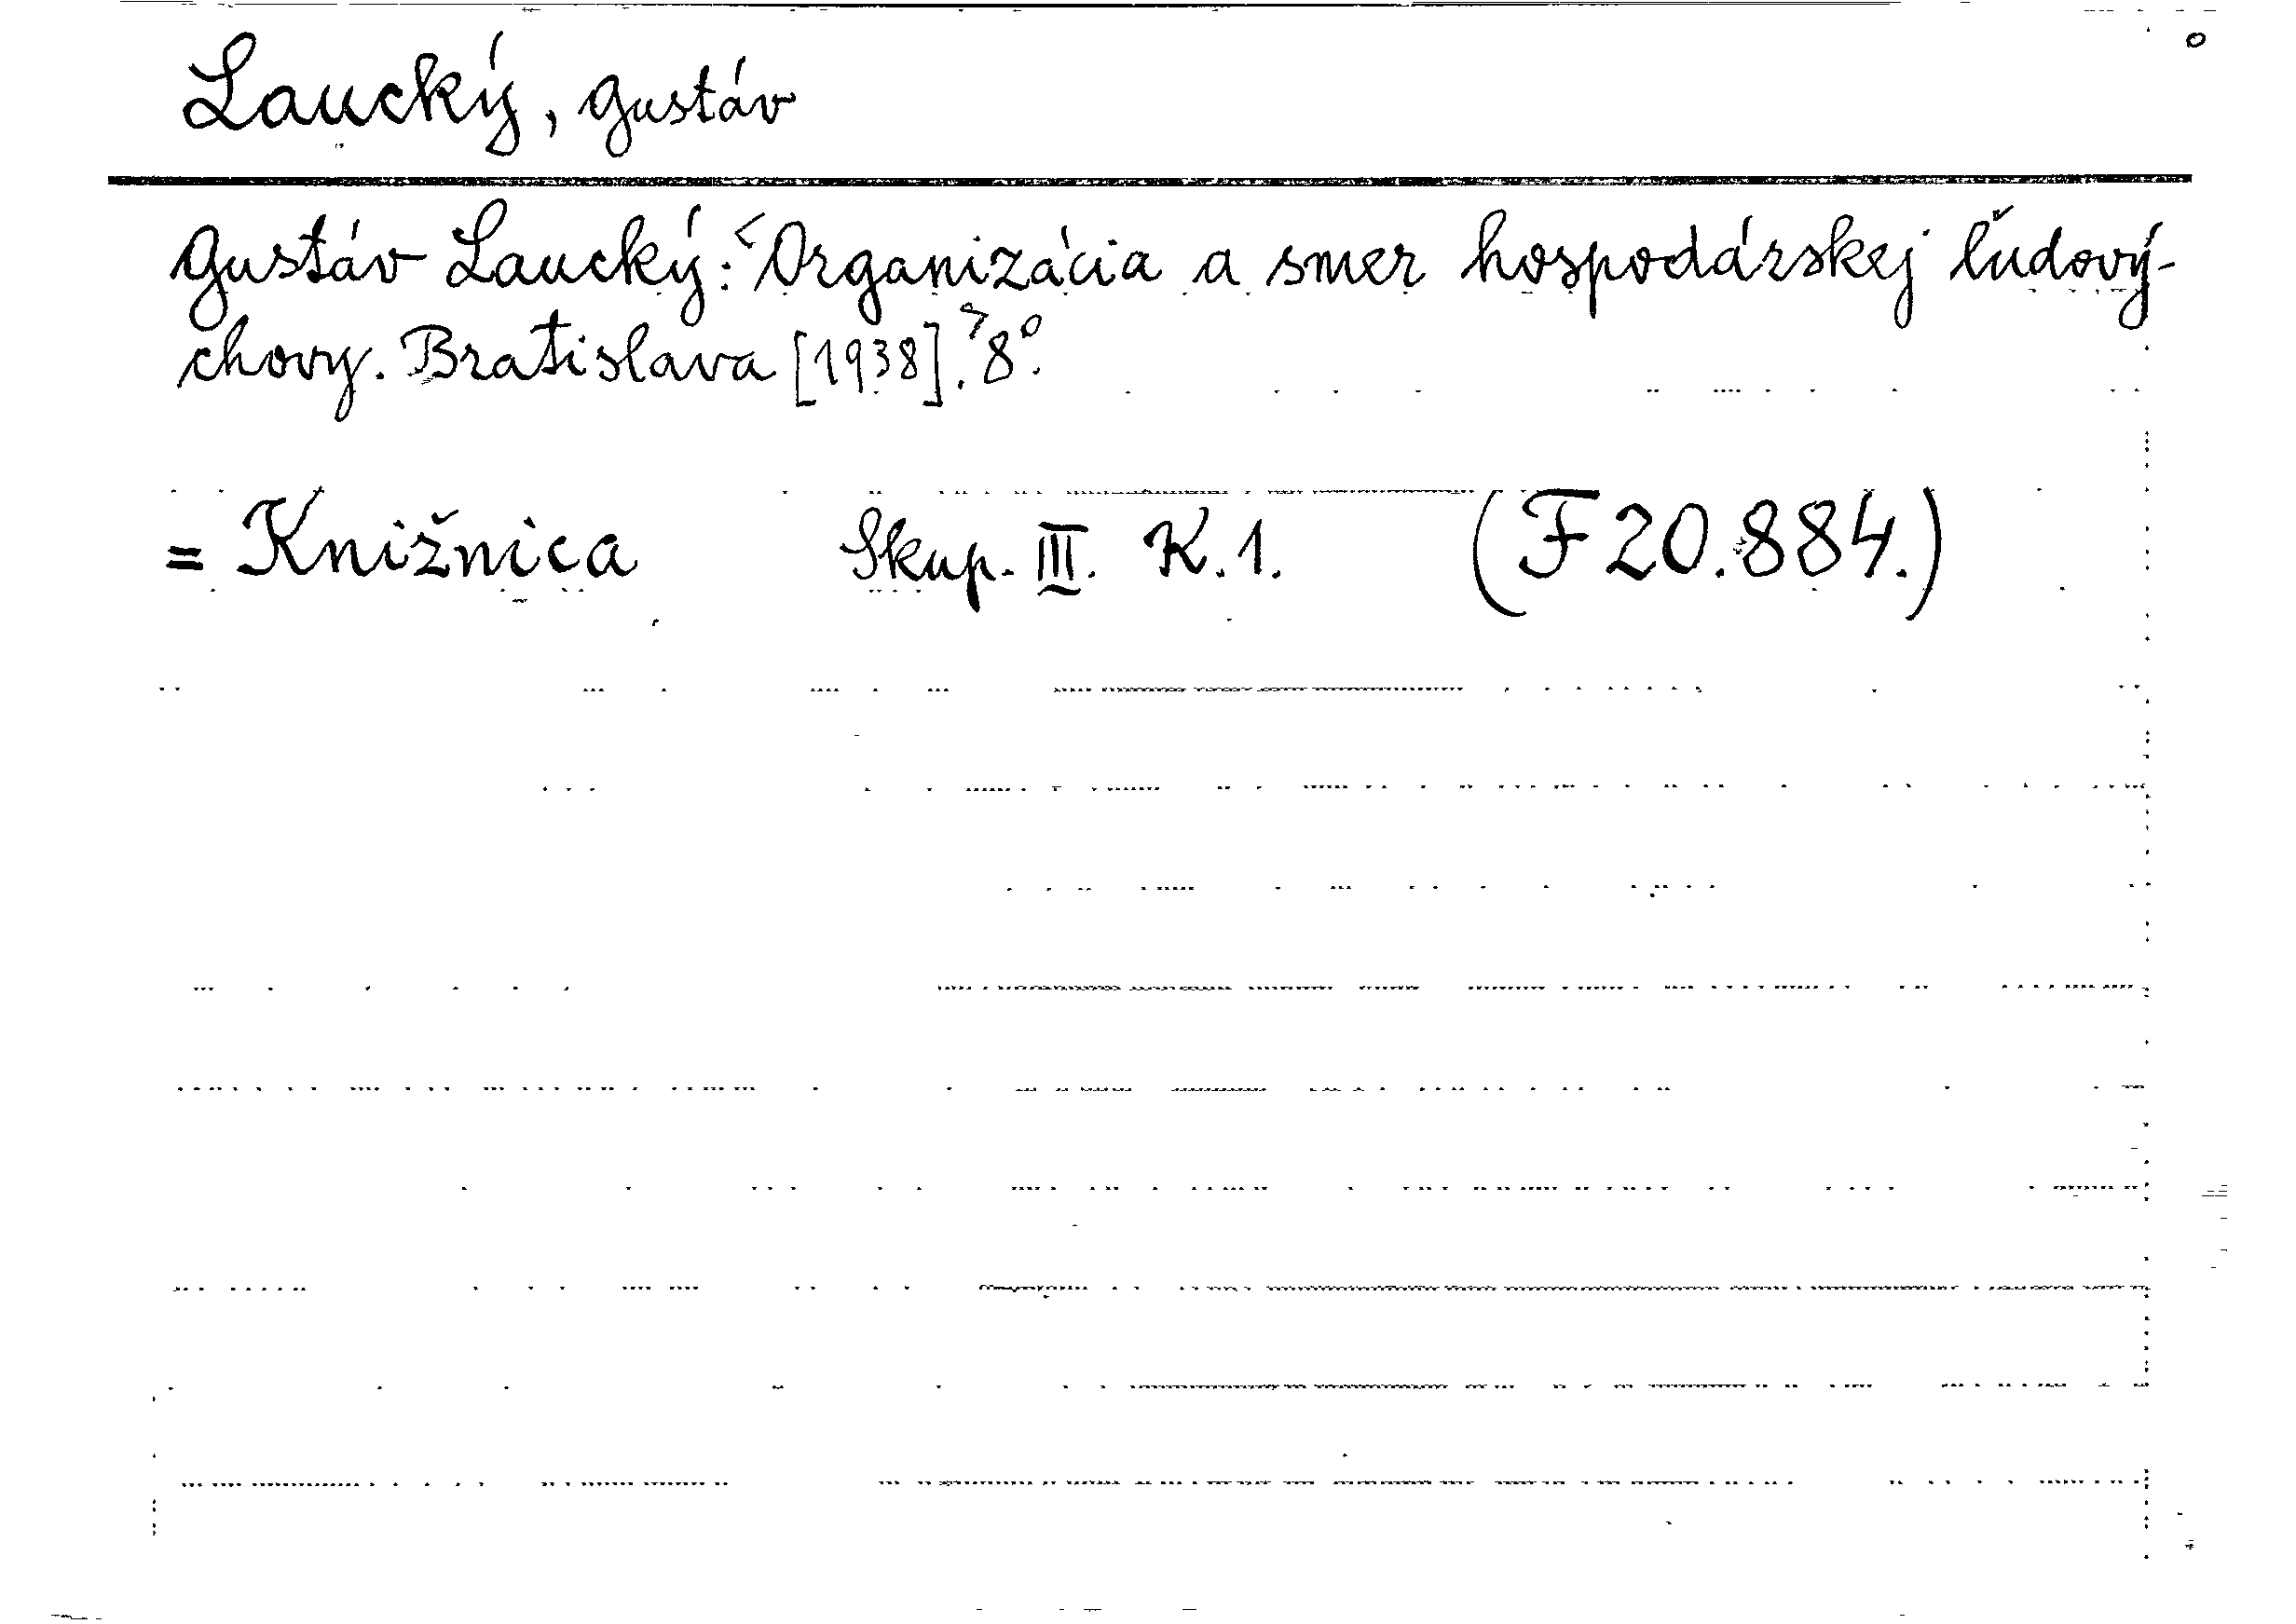 Laucký, Gustáv
Gustáv Laucký: <Organizácia a smer hospodárskej ľudový-
chovy. Bratislava [1938].> 8°.
= Knižnica Skup. III. K. 1. (F 20.884.)